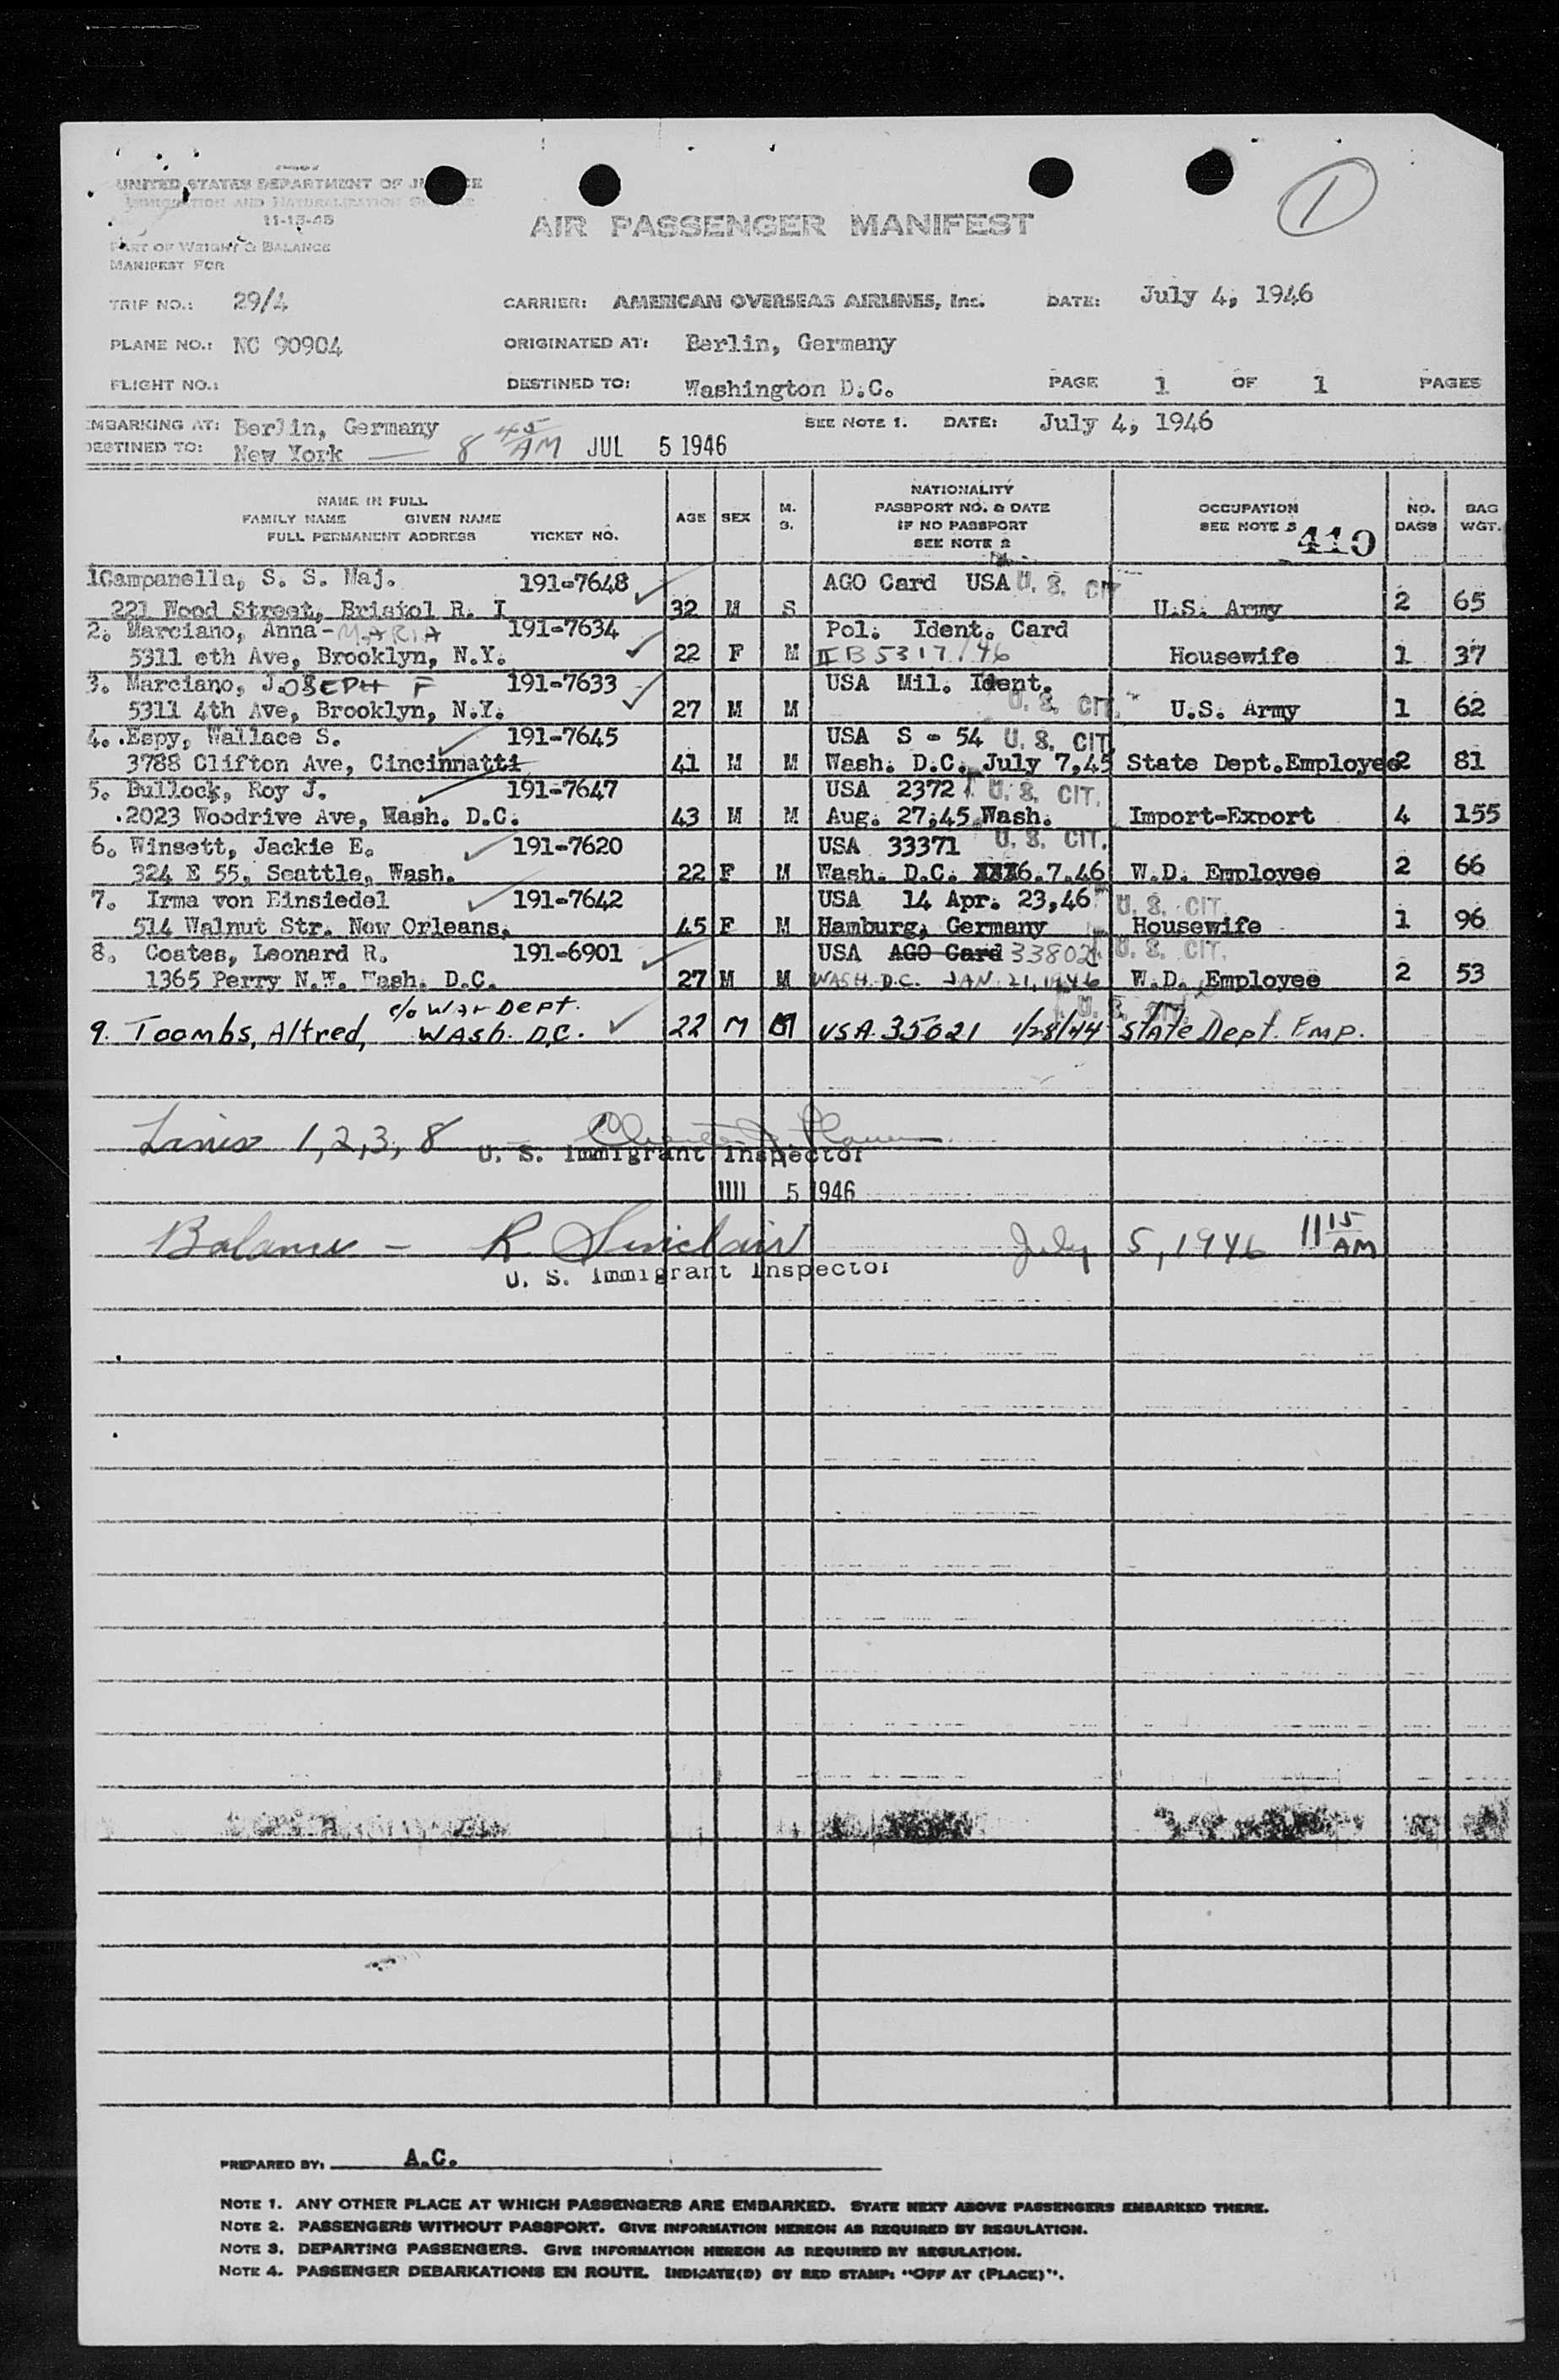 UNITED STATES DEPARTMENT OF JUSTICE
IMMIGRATION AND NATURALIZATION SERVICE
11-15-45
PART OF WEIGHT & BALANCE
MANIFEST FOR
AIR PASSENGER MANIFEST
1
TRIP NO.: 29/4 CARRIER: AMERICAN OVERSEAS AIRLINES, Inc. DATE: July 4, 1946
PLANE NO.: NC 90904 ORIGINATED AT: Berlin, Germany
FLIGHT NO.: DESTINED TO: Washington D.C. PAGE 1 OF 1 PAGES
EMBARKING AT: Berlin, Germany SEE NOTE 1. DATE: July 4, 1946
DESTINED TO: New York — 8 45 AM JUL 5 1946
NAME IN FULL
FAMILY NAME GIVEN NAME
FULL PERMANENT ADDRESS TICKET NO.
AGE SEX M. S.
NATIONALITY
PASSPORT NO. & DATE
IF NO PASSPORT
SEE NOTE 2
OCCUPATION
SEE NOTE 3 410
NO. BAGS BAG WGT.
1Campanella, S. S. Maj. 191-7648 AGO Card USA U. S. CIT
221 Wood Street, Bristol R. I 32 M S U.S. Army 2 65
2. Marciano, Anna-MARIA 191-7634 Pol. Ident. Card
5311 eth Ave, Brooklyn, N.Y. 22 F M II B 5317/46 Housewife 1 37
3. Marciano, J.OSEPH F 191-7633 USA Mil. Ident.
5311 4th Ave, Brooklyn, N.Y. 27 M M U. S. CIT. U.S. Army 1 62
4. .Espy, Wallace S. 191-7645 USA S - 54 U. S. CIT
3788 Clifton Ave, Cincinnatti 41 M M Wash. D.C. July 7,45 State Dept.Employee 2 81
5. Bullock, Roy J. 191-7647 USA 2372 U. S. CIT.
.2023 Woodrive Ave, Wash. D.C. 43 M M Aug. 27,45 Wash. Import-Export 4 155
6. Winsett, Jackie E. 191-7620 USA 33371 U. S. CIT.
324 E 55, Seattle, Wash. 22 F M Wash. D.C. XXX6.7.46 W.D. Employee 2 66
7. Irma von Einsiedel 191-7642 USA 14 Apr. 23,46 U. S. CIT.
514 Walnut Str. New Orleans. 45 F M Hamburg, Germany Housewife 1 96
8. Coates, Leonard R. 191-6901 USA AGO Card 33802 U. S. CIT.
1365 Perry N.W. Wash. D.C. 27 M M WASH. D.C. JAN. 21, 1946 W.D. Employee 2 53
c/o War Dept. U. S. CIT.
9. Toombs, Alfred, Wash. D.C. 22 M M USA 35021 1/28/44 State Dept. Emp.
Lines 1,2,3, 8
U. S. Immigrant Inspector
5 1946
Balance - R Sinclair July 5, 1946 11 15 AM
U. S. Immigrant Inspector
PREPARED BY: A.C.
NOTE 1. ANY OTHER PLACE AT WHICH PASSENGERS ARE EMBARKED. STATE NEXT ABOVE PASSENGERS EMBARKED THERE.
NOTE 2. PASSENGERS WITHOUT PASSPORT. GIVE INFORMATION HEREON AS REQUIRED BY REGULATION.
NOTE 3. DEPARTING PASSENGERS. GIVE INFORMATION HEREON AS REQUIRED BY REGULATION.
NOTE 4. PASSENGER DEBARKATIONS EN ROUTE. INDICATE(D) BY RED STAMP: "OFF AT (PLACE)".